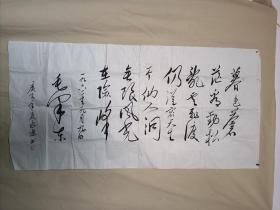 暮色苍
茫看劲松
乱云飞渡
仍从容天生
一个仙人洞
无限风光
在险峰
一九六一年九月九日
毛泽东